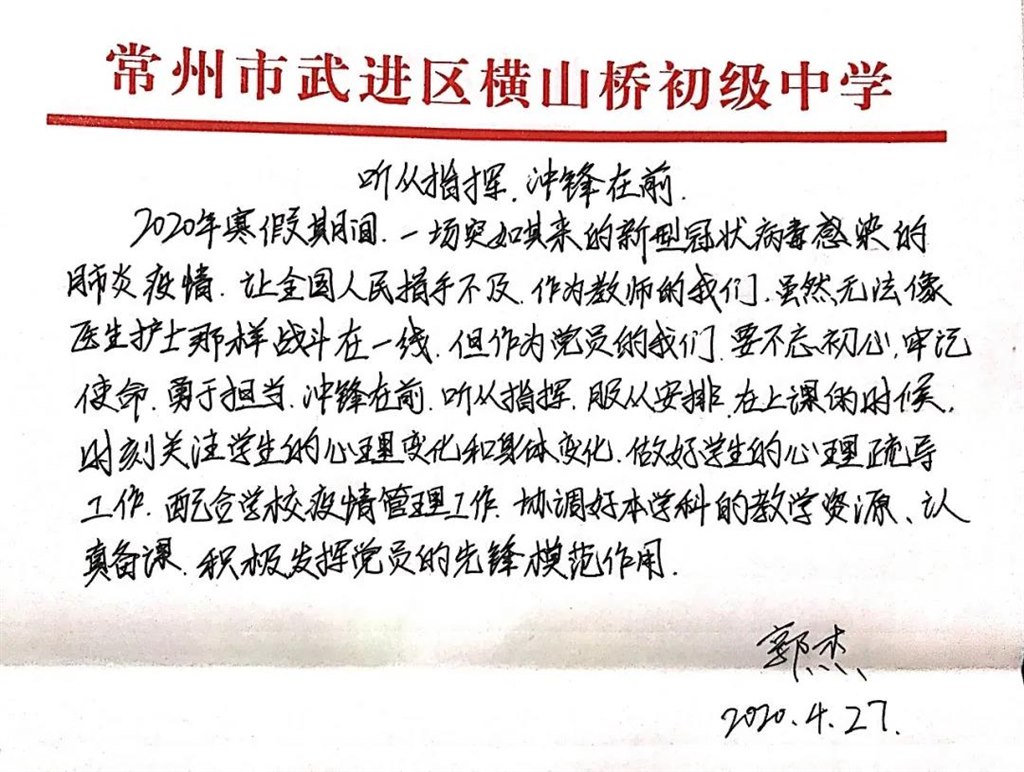 常州市武进区横山桥初级中学
听从指挥,冲锋在前.
2020年寒假期间.一场突如其来的新型冠状病毒感染的
肺炎疫情.让全国人民措手不及.作为教师的我们.虽然无法像
医生护士那样战斗在一线.但作为党员的我们.要不忘初心,牢记
使命.勇于担当.冲锋在前.听从指挥.服从安排.在上课的时候,
时刻关注学生的心理变化和身体变化.做好学生的心理疏导
工作.配合学校疫情管理工作.协调好本学科的教学资源、认
真备课.积极发挥党员的先锋模范作用.
郭杰
2020.4.27.